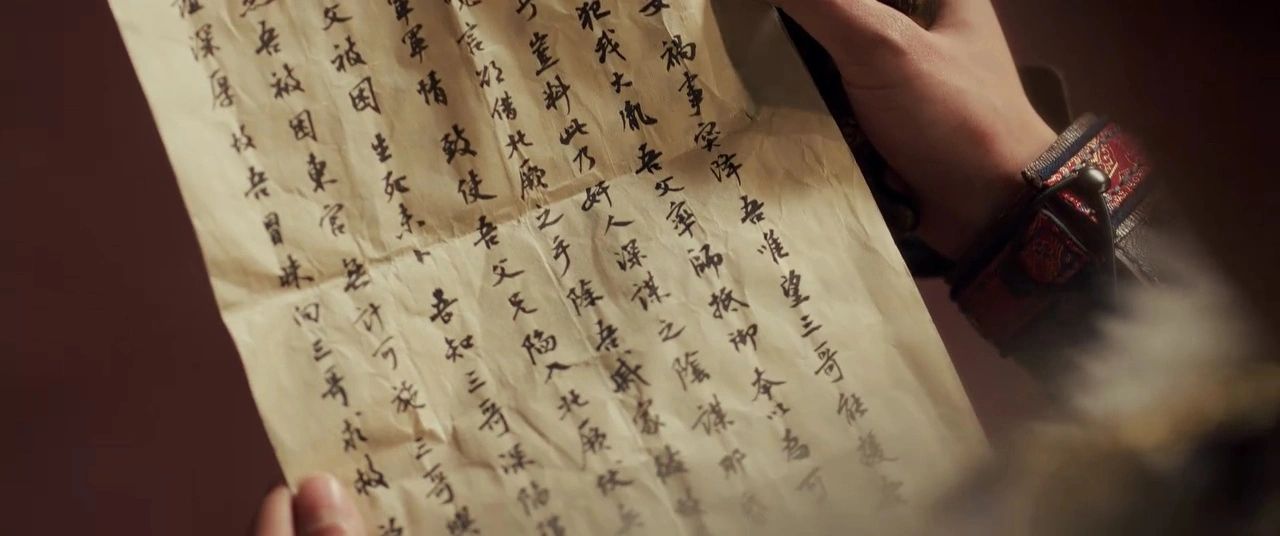 禍事突降吾唯望三哥能護
犯我大胤吾父率師抵御本以為可
豈料此乃奸人深謀之陰謀那
言卻借北厥之手除吾戚家
軍軍情致使吾父兄陷入北厥伏兵
父被困生死未卜吾知三哥深陷
吾被困東宮無計可施三哥與
深厚故吾冒昧向三哥求救